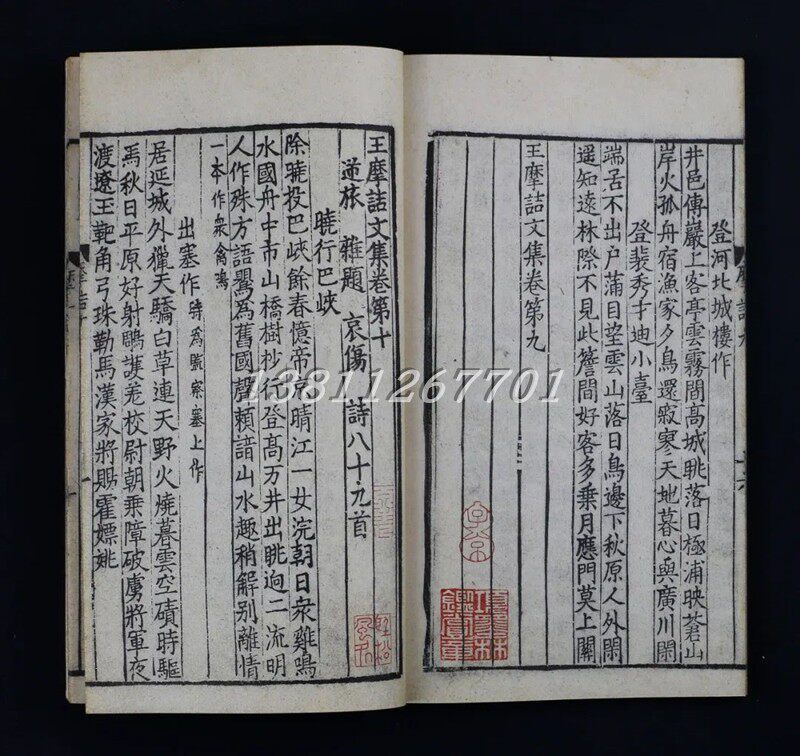 登河北城樓作
井邑傳巖上客亭雲霧間高城眺落日極浦映蒼山
岸火孤舟宿漁家夕鳥還寂寥天地暮心與廣川閑
登裴秀才迪小臺
端居不出户滿目望雲山落日鳥邊下秋原人外閑
遥知遠林際不見此簷間好客多乗月應門莫上關
王摩詰文集卷第九
王摩詰文集卷第十
逆旅 雜題 哀傷 詩八十九首
曉行巴峽
際曉投巴峽餘春憶帝京晴江一女浣朝日衆雞鳴
水國舟中市山橋樹杪行登高万井出眺迥二流明
人作殊方語鸎為舊國聲頼諳山水趣稍解別離情
一本作衆禽鳴
出塞作 時為監察塞上作
居延城外獵天驕白草連天野火燒暮雲空磧時驅
馬秋日平原好射鵰護羌校尉朝乗障破虜將軍夜
渡遼玉靶角弓珠勒馬漢家將賜霍嫖姚
13811267701